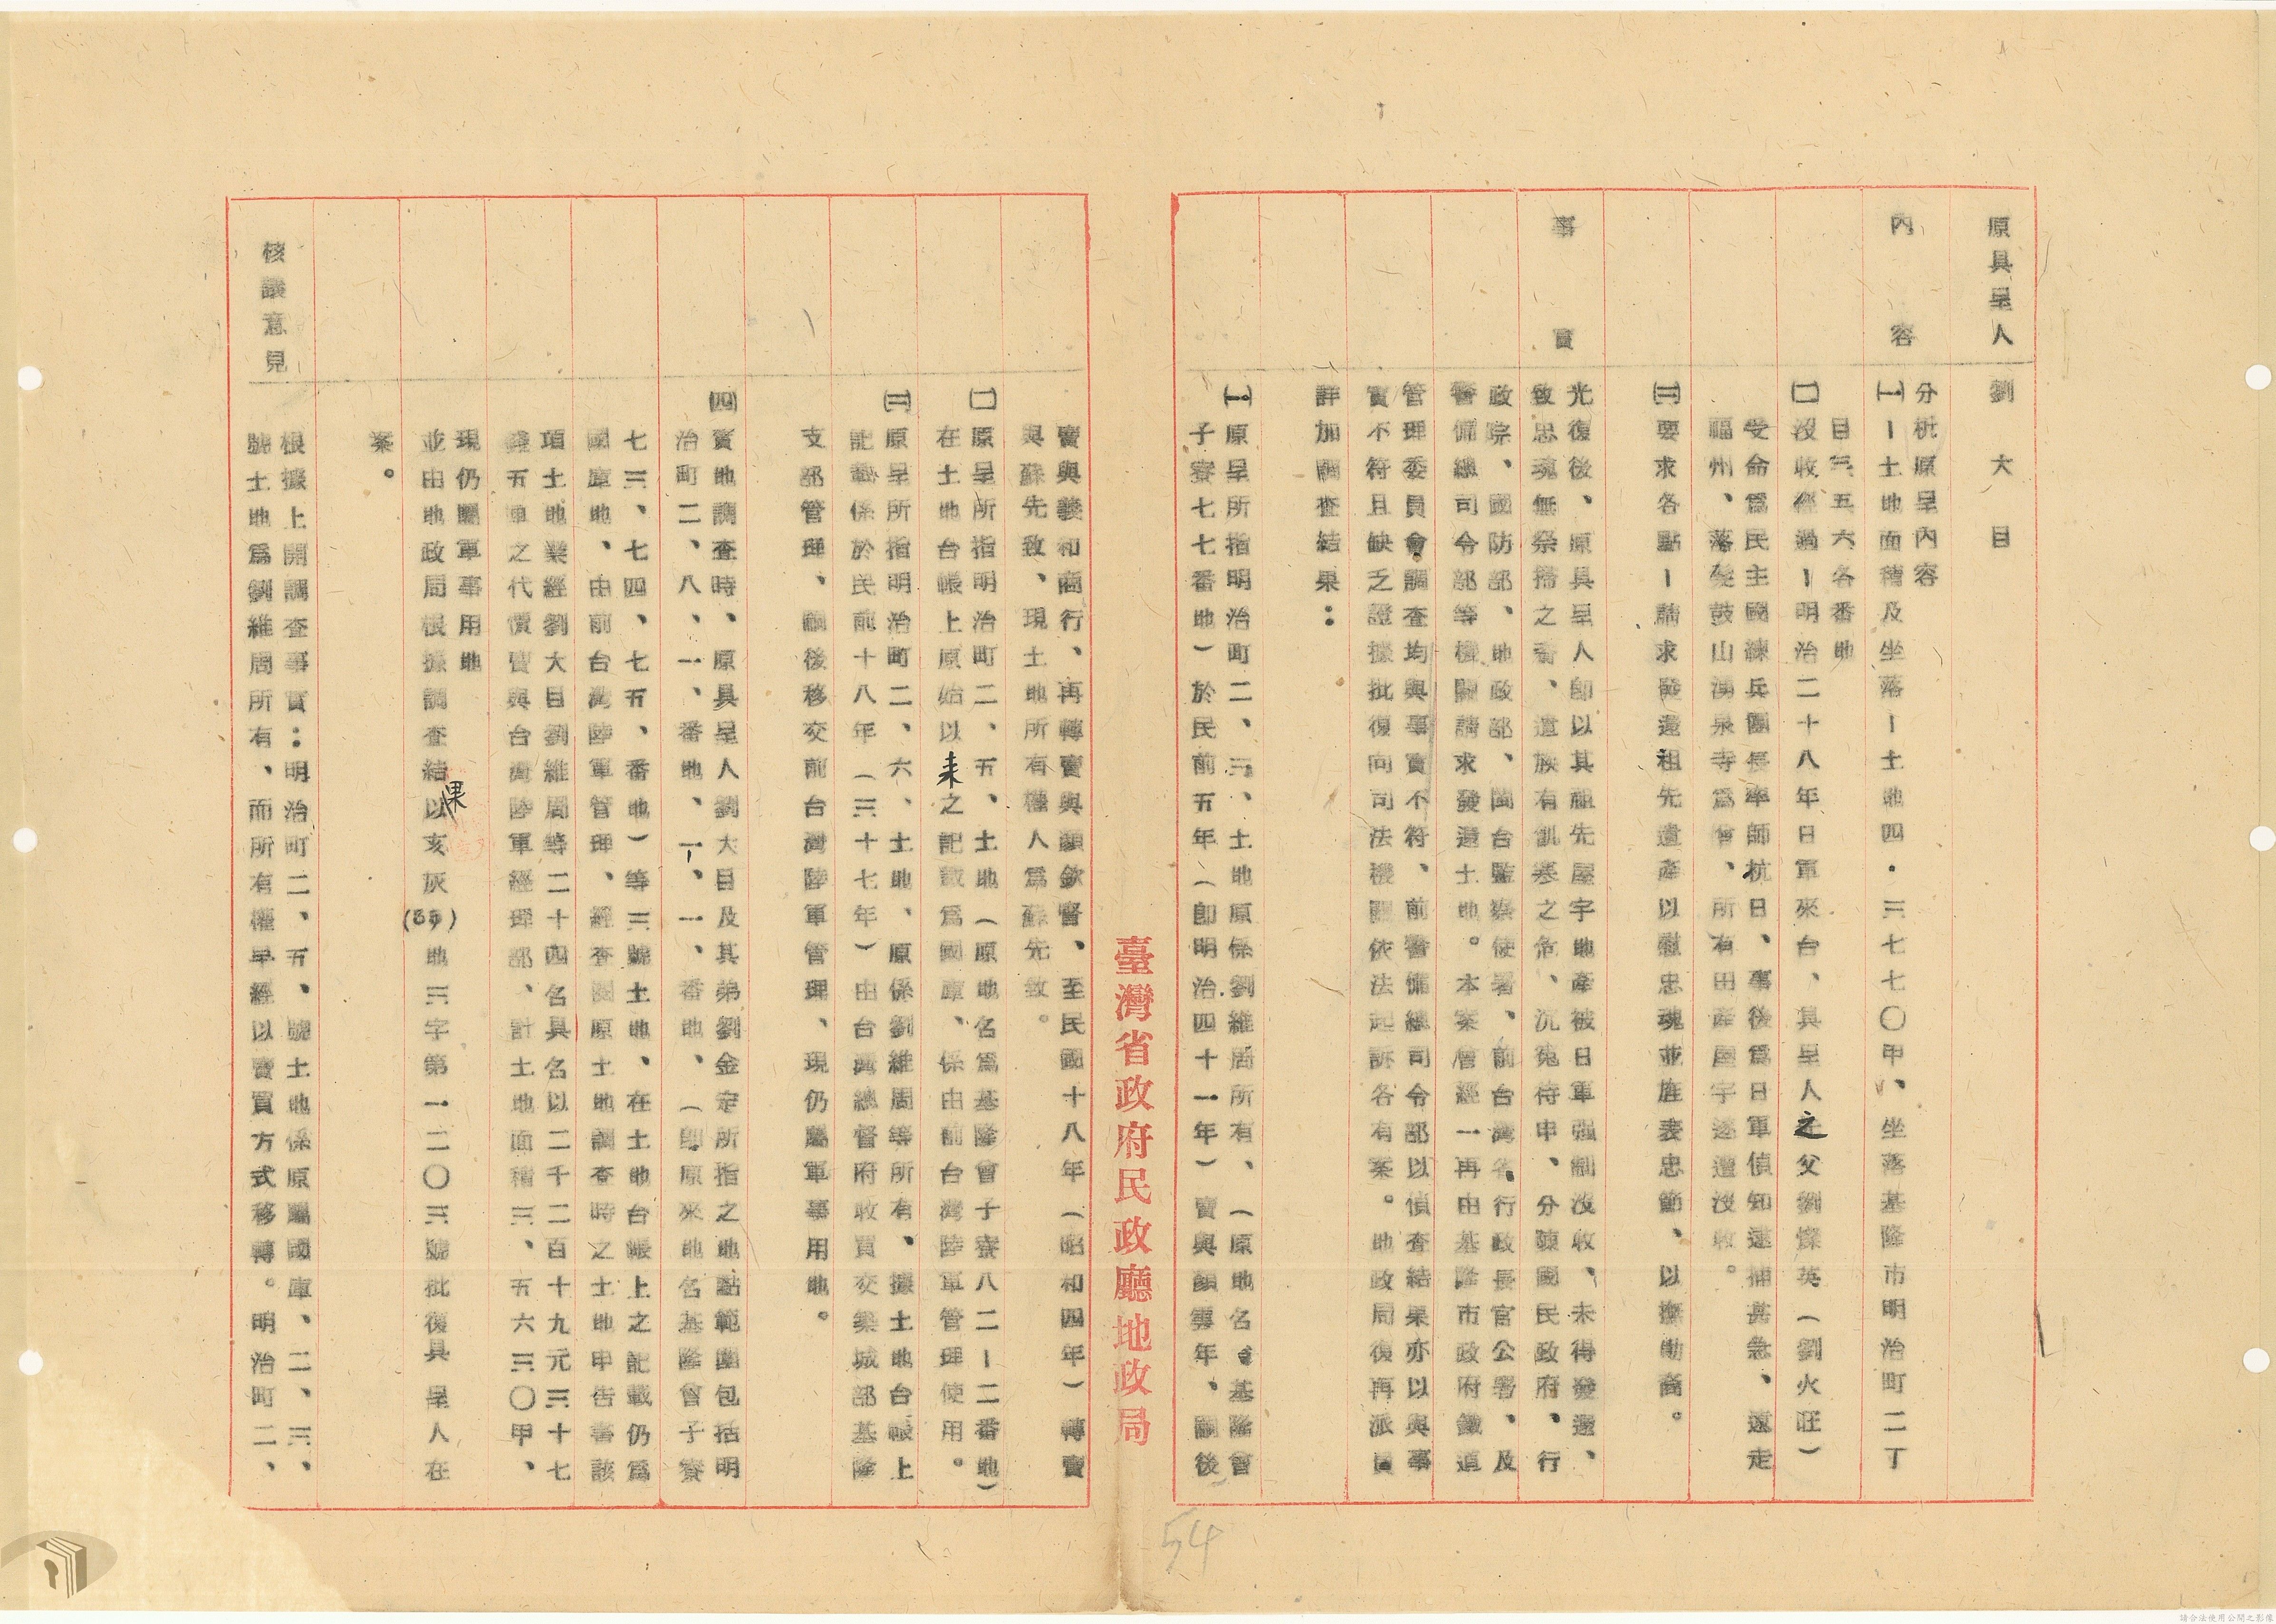 原具呈人 劉大目
內容 分析原呈內容
㈠土地面積及坐落—土地四.三七七〇甲、坐落基隆市明治町二丁
目三五六各番地
㈡沒收經過—明治二十八年日軍來台、具呈人之父劉燦英(劉火旺)
受命爲民主國練兵團長率師抗日、事後爲日軍偵知逮捕甚急、遠走
福州、落髮鼓山湧泉寺爲僧、所有田產屋宇遂遭沒收。
㈢要求各點—請求發還祖先遺產以慰忠魂並旌表忠節、以撫勛裔。
事實 光復後、原具呈人卽以其祖先屋宇地產被日軍强制沒收、未得發還、
致忠魂無祭掃之資、遺族有飢寒之危、沉寃待申、分陳國民政府、行
政院、國防部、地政部、閩台監察使署、前台灣省行政長官公署、及
警備總司令部等機關請求發還土地。本案曾經一再由基隆市政府鐵道
管理委員會調查均與事實不符、前警備總司令部以偵查結果亦以與事
實不符且缺乏證據批復向司法機關依法起訴各有案。地政局復再派員
詳加調查結果：
㈠原呈所指明治町二、三、土地原係劉維周所有、(原地名基隆會
子寮七七番地)於民前五年(卽明治四十一年)賣與顏雲年、嗣後
臺灣省政府民政廳地政局
賣與義和商行、再轉賣與顏欽賢、至民國十八年(昭和四年)轉賣
與蘇先致、現土地所有權人爲蘇先致。
㈡原呈所指明治町二、五、土地(原地名爲基隆會子寮八二—二番地)
在土地台帳上原始以來之記載爲國庫、係由前台灣陸軍管理使用。
㈢原呈所指明治町二、六、土地、原係劉維周等所有、據土地台帳上
記載係於民前十八年(三十七年)由台灣總督府收買交築城部基隆
支部管理、嗣後移交前台灣陸軍管理、現仍屬軍事用地。
㈣實地調查時、原具呈人劉大目及其弟劉金定所指之地點範圍包括明
治町二、八、一、番地、一、一、番地、(卽原來地名基隆會子寮
七三、七四、七五、番地)等三號土地、在土地台帳上之記載仍爲
國庫地、由前台灣陸軍管理、經查閱原土地調查時之土地申告書該
項土地業經劉大目劉維周等二十四名具名以二千二百十九元三十七
錢五厘之代價賣與台灣陸軍經理部、計土地面積三、五六三〇甲、
現仍屬軍事用地
並由地政局根據調查結果以亥灰(35)地三字第一二〇三號批復具呈人在
案。
核議意見 根據上開調查事實：明治町二、五、號土地係原屬國庫、二、三、
號土地爲劉維周所有、而所有權早經以賣買方式移轉。明治町二、
54
請合法使用公開之影像